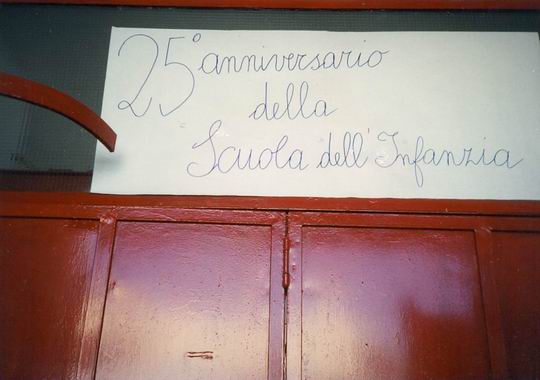 25° anniversario
della
Scuola dell'Infanzia